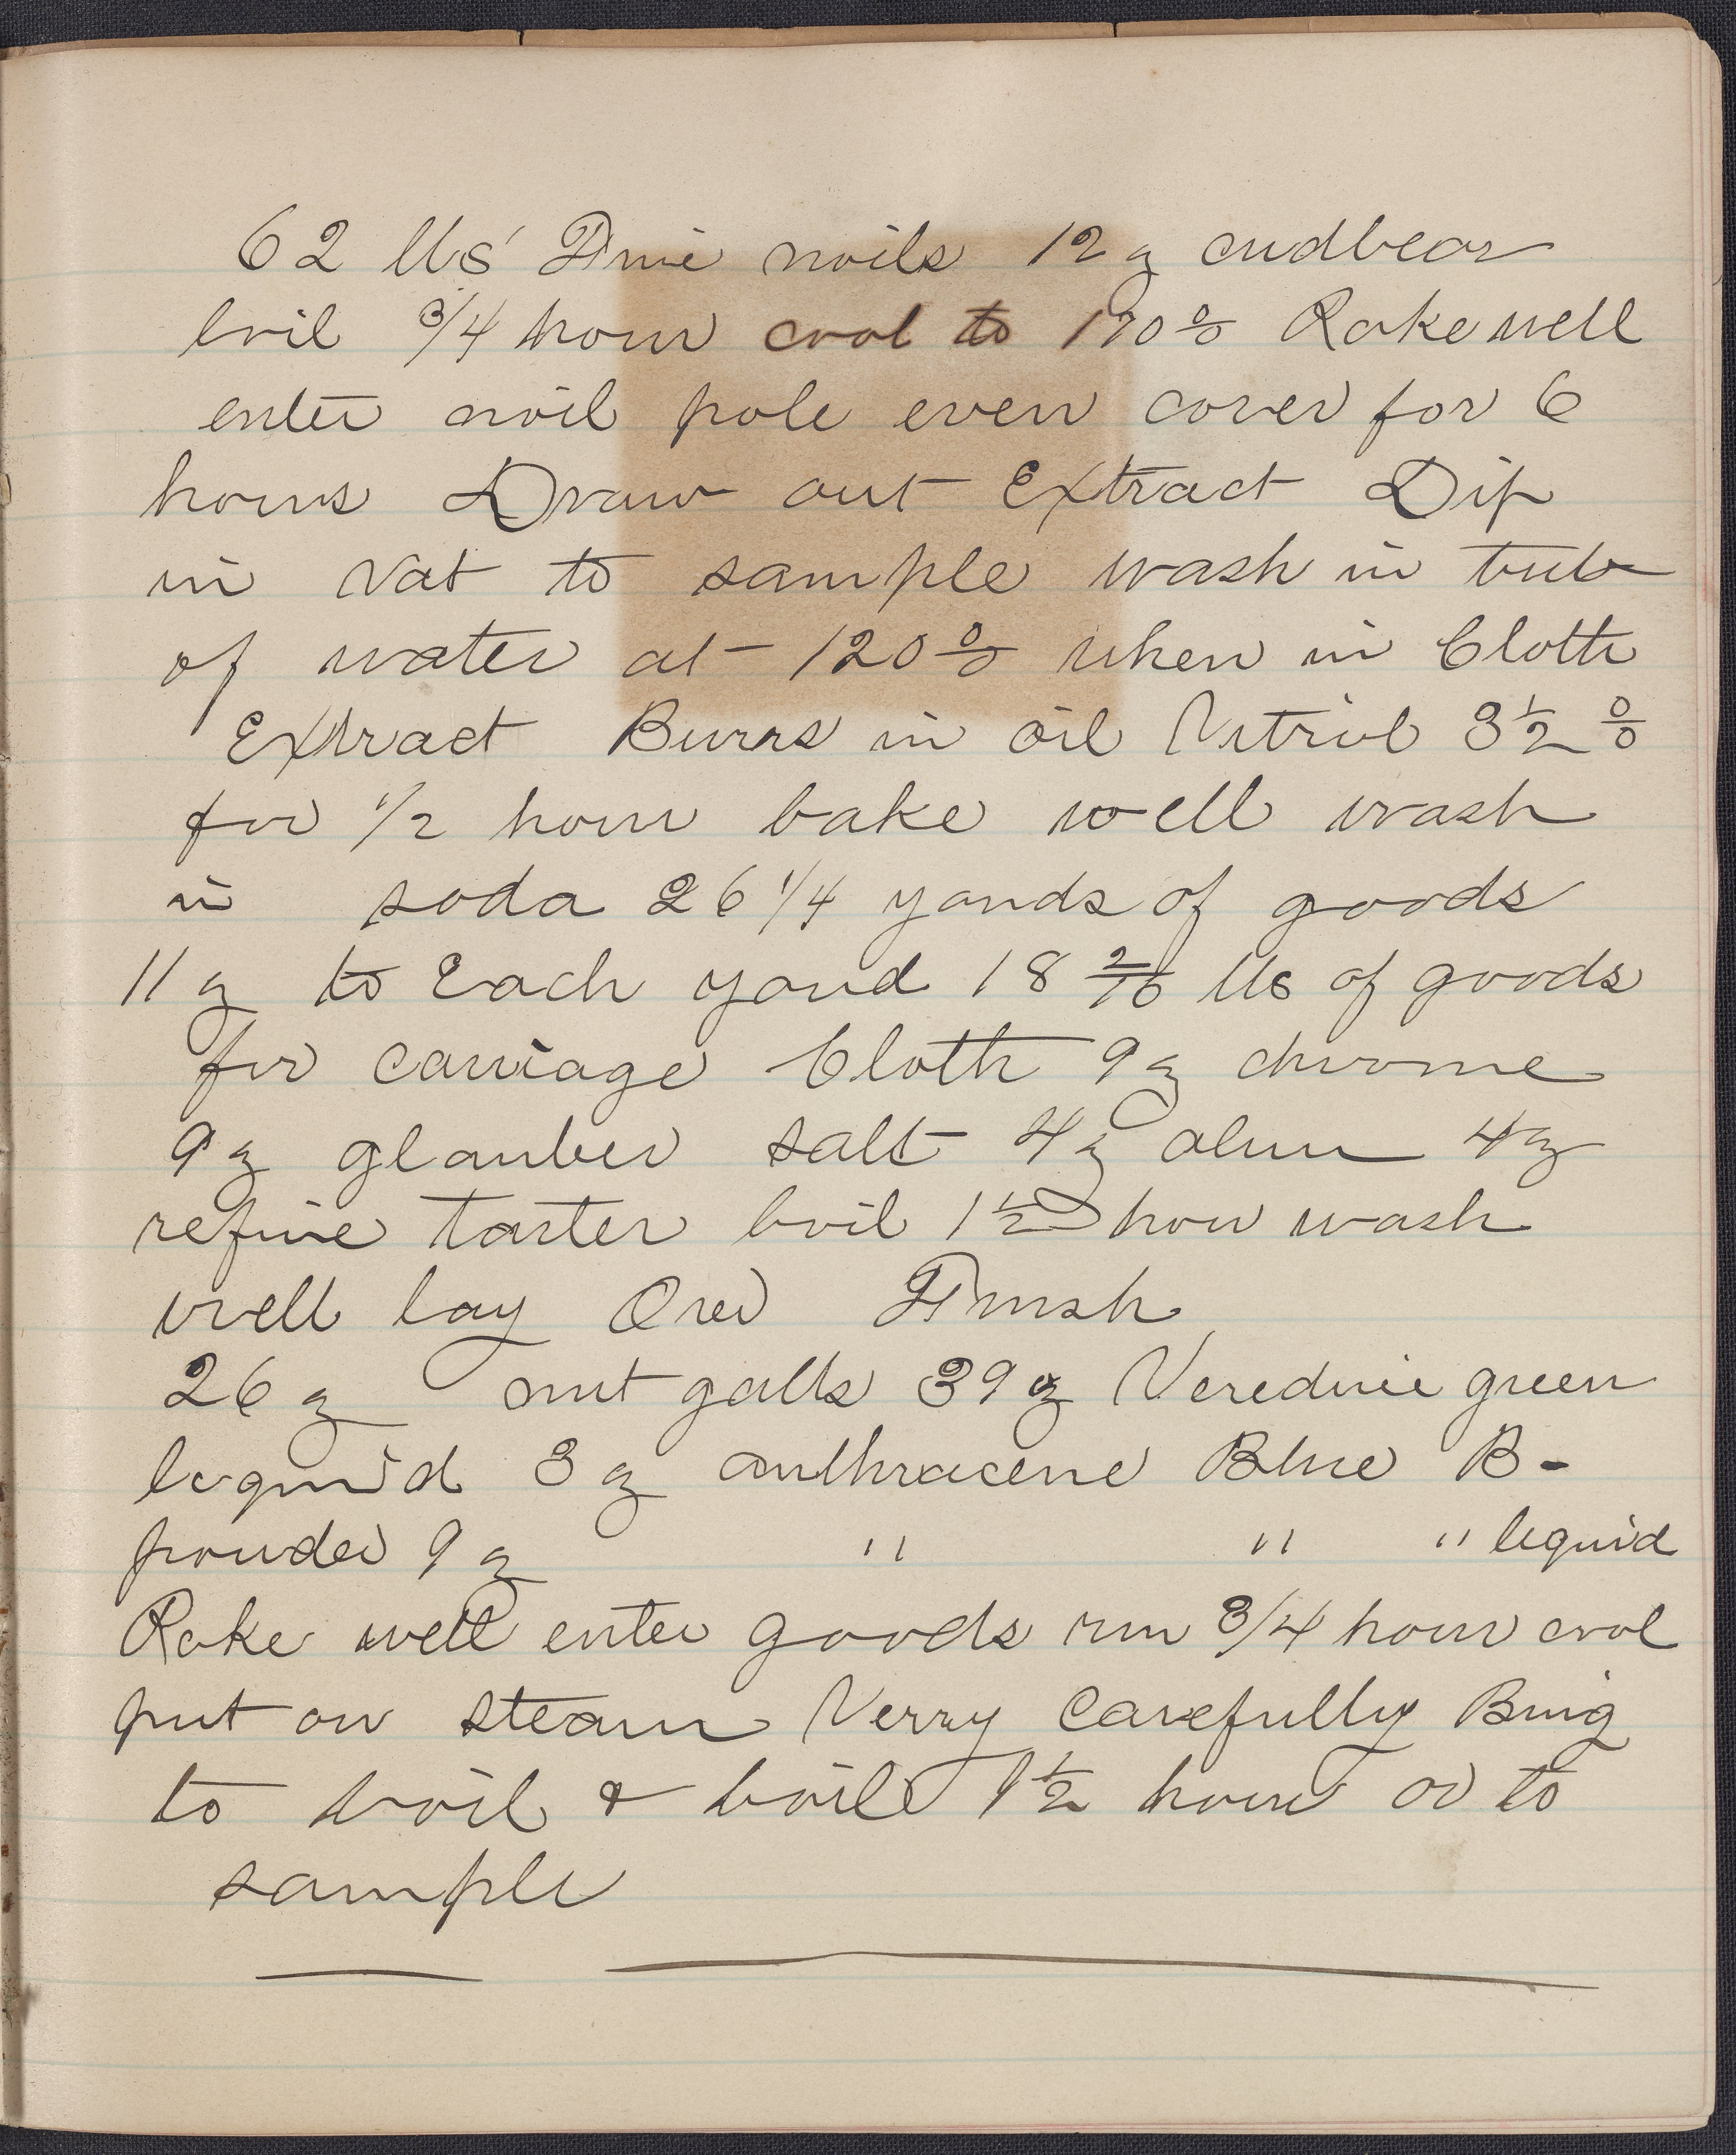 62 lbs' Fine noils 12 ℥ cudbear
boil 3/4 hour cool to 170 % Rake well
enter noil pole even cover for 6
hours Draw out Extract Dip
in Vat to sample wash in tub
of water at 120 % when in Cloth
Extract Burrs in oil Vitriol 3 1/2 %
for 1/2 hour bake well wash
in soda 26 1/4 yards of goods
11 ℥ to Each yard 18 2/16 lbs of goods
for carriage Cloth 9 ℥ chrome
9 ℥ glauber salt 4 ℥ alum 4 ℥
refine tarter boil 1 1/2 hour wash
well lay Over Finish
26 ℥ nut galls 39 ℥ Veredine green
lequid 3 ℥ anthracene Blue B-
powder 9 ℥ " " " lequid
Rake well enter goods run 3/4 hour cool
put on steam Verry carefully Bring
to boil & boil 1 1/2 hours or to
sample